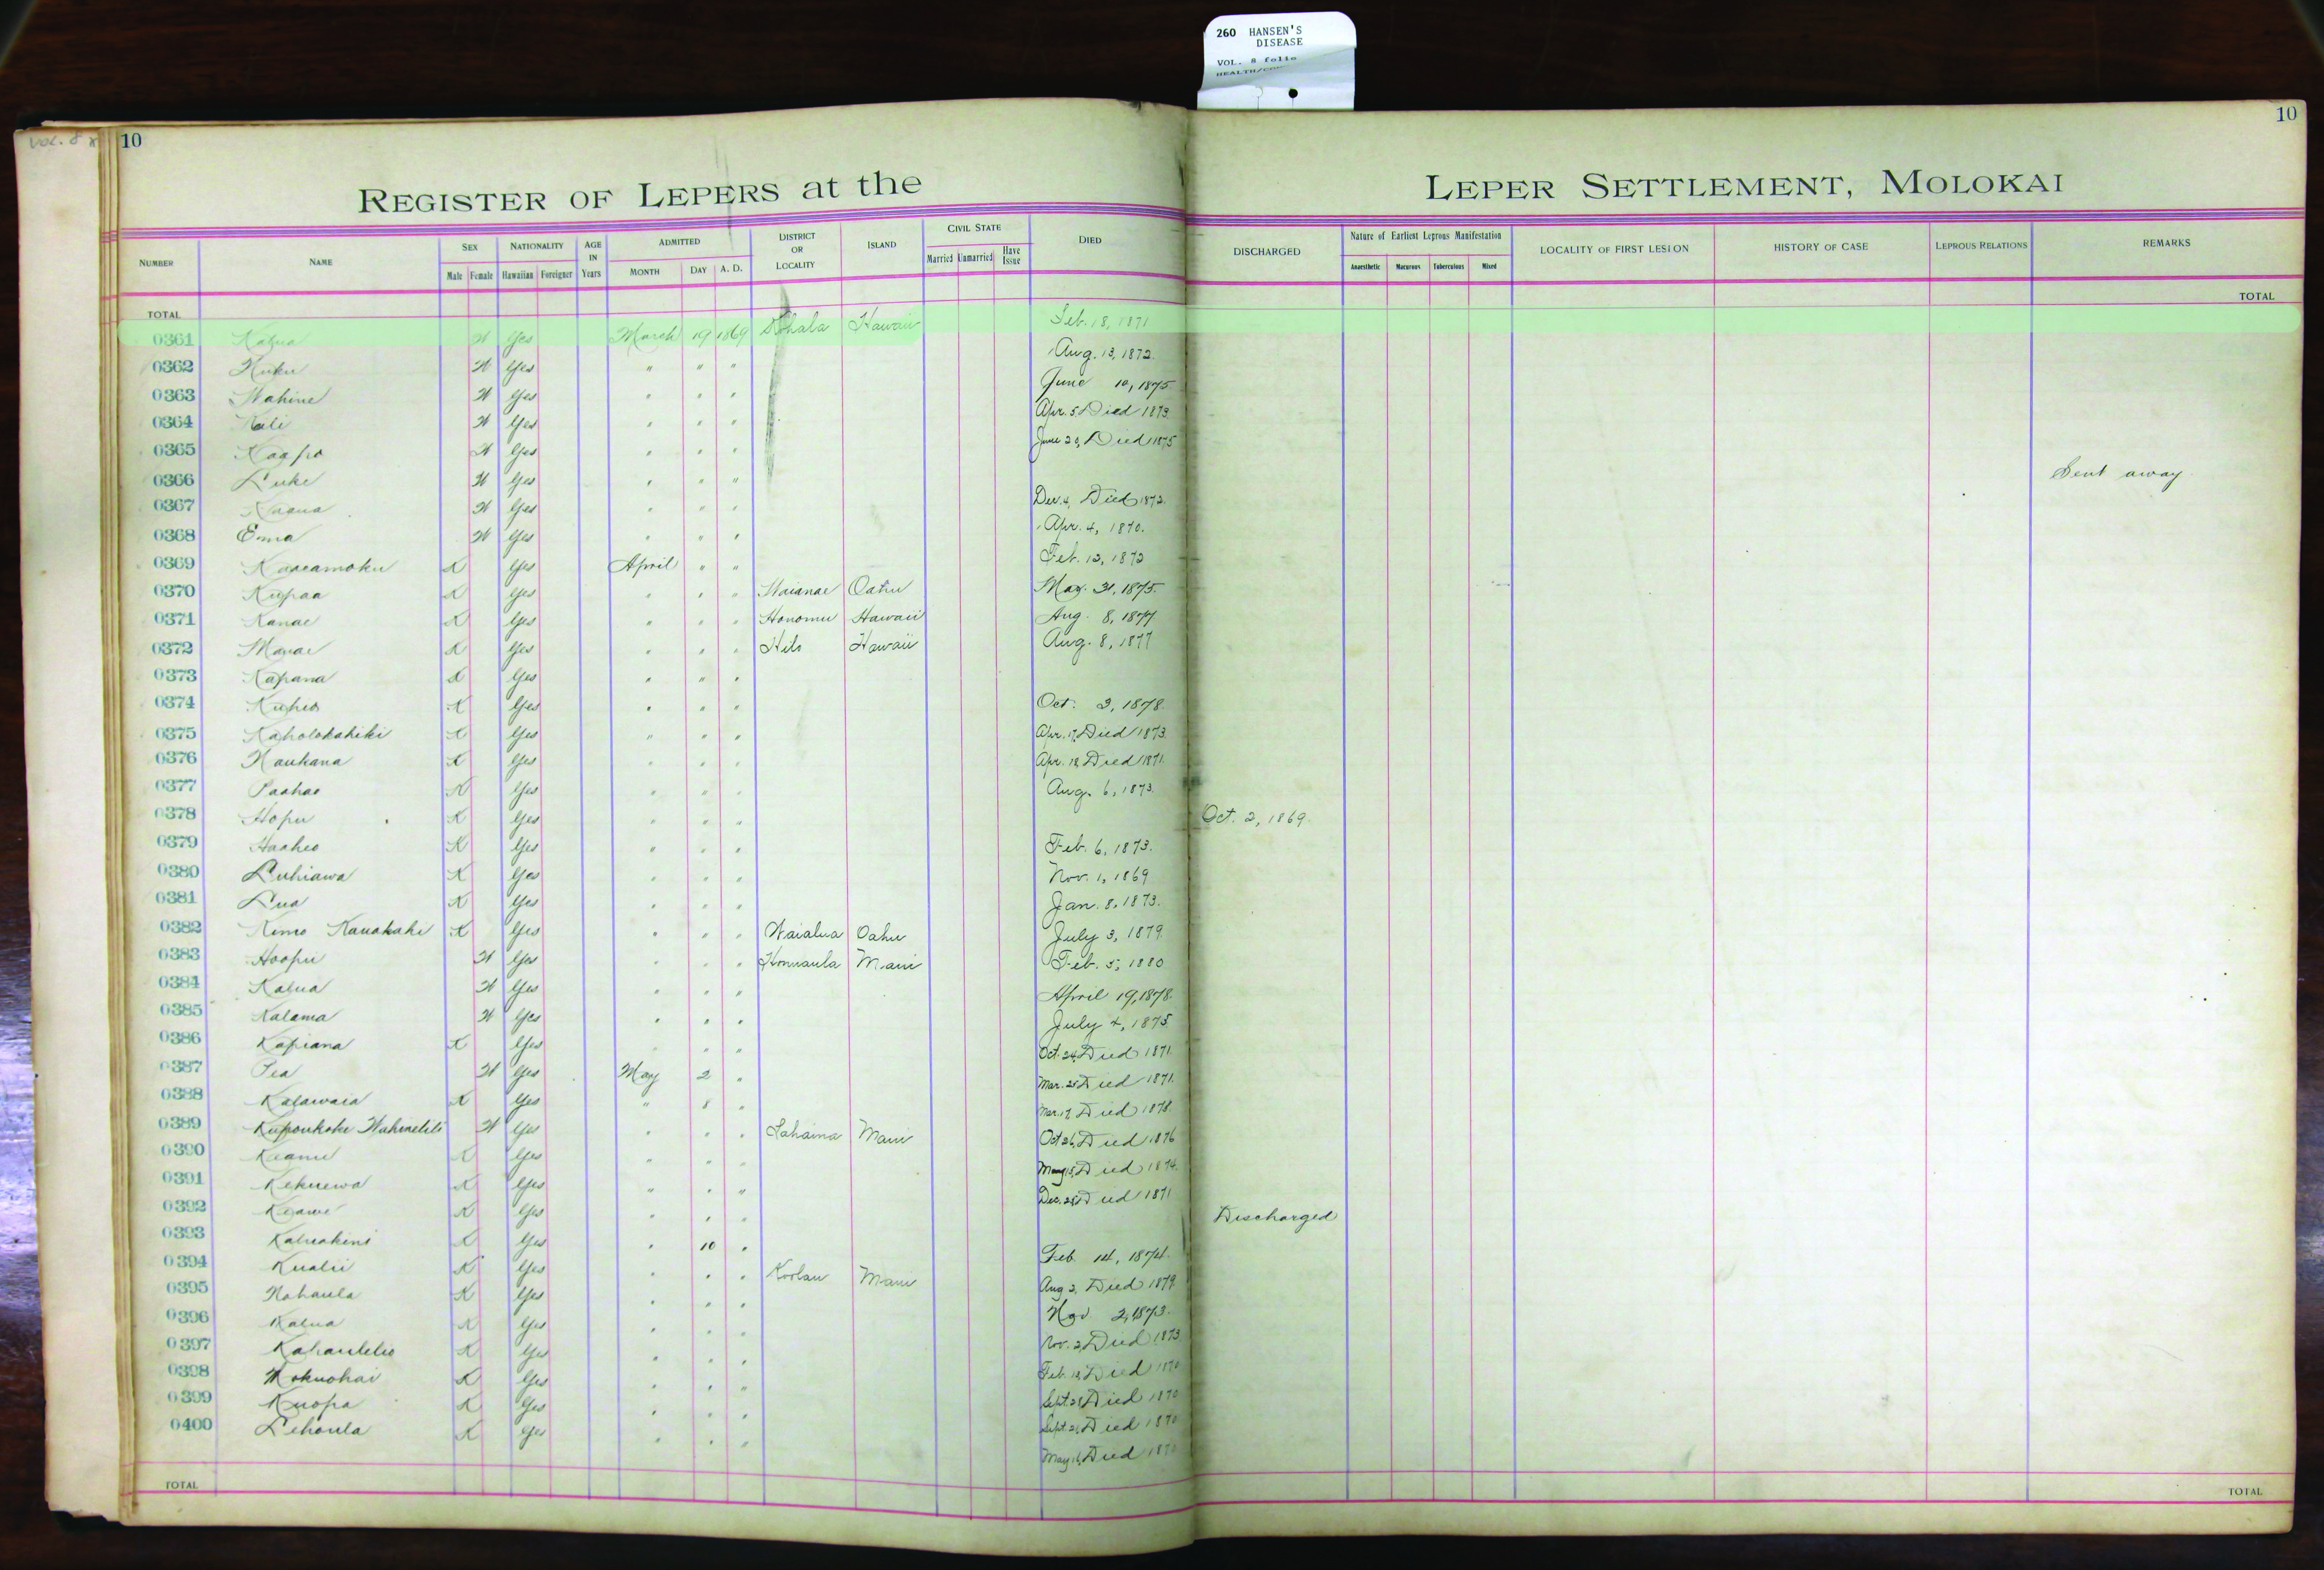 260 HANSEN'S
DISEASE
VOL. 8 folio
VOL. 8
10
10
REGISTER OF LEPERS at the LEPER SETTLEMENT, MOLOKAI
NUMBER NAME SEX NATIONALITY AGE IN Years ADMITTED DISTRICT OR LOCALITY ISLAND CIVIL STATE DIED DISCHARGED Nature of Earliest Leprous Manifestation LOCALITY OF FIRST LESION HISTORY OF CASE LEPROUS RELATIONS REMARKS
Male Female Hawaiian Foreigner MONTH DAY A. D. Married Unmarried Have Issue Anaesthetic Macurous Tuberculous Mixed
TOTAL TOTAL
0361 Kalua W Yes March 19 1869 Kohala Hawaii Feb. 18, 1871
0362 Kuku W Yes " " " Aug. 13, 1872.
0363 Wahine W Yes " " " June 10, 1875
0364 Kali W Yes " " " Apr. 5 Died 1873.
0365 Kaapo W Yes " " " June 29, Died 1875
0366 Luke W Yes " " " Sent away
0367 W Yes " " " Dec. 4, Died 1872.
0368 Emma W Yes " " " Apr. 4, 1870.
0369 Kaaeamoku K Yes April " " Feb. 12, 1872
0370 Kupaa K Yes " " " Waianae Oahu May. 31, 1875.
0371 Kanae K Yes " " " Honomu Hawaii Aug. 8, 1877
0372 K Yes " " " Hilo Hawaii Aug. 8, 1877
0373 Kapana K Yes " " "
0374 Kuheo K Yes " " " Oct. 3, 1878.
0375 Kaholokahiki K Yes " " " Apr. 17, Died 1873.
0376 Naukana K Yes " " " Apr. 18 Died 1871.
0377 Paahao K Yes " " " Aug. 6, 1873.
0378 Hopu K Yes " " " Oct. 2, 1869.
0379 Haaheo K Yes " " " Feb. 6, 1873.
0380 Luhiawa K Yes " " " Nov. 1, 1869
0381 Lua K Yes " " " Jan. 8, 1873.
0382 Kimo Kauakahi K Yes " " " Waialua Oahu July 3, 1879.
0383 Hoopii W Yes " " " Honuaula Maui Feb. 5, 1880
0384 Kalua W Yes " " " April 19, 1878.
0385 Kalama W Yes " " " July 4, 1875
0386 Kapiana K Yes " " " Oct. 24, Died 1871.
0387 Pea W Yes May 2 " Mar. 25 Died 1871.
0388 Kalawaia K Yes " 8 " Mar. 17, Died 1878.
0389 W Yes " " " Lahaina Maui Oct 26, Died 1876
0390 Keanu K Yes " " " May 15, Died 1874.
0391 Kekuewa K Yes " " " Dec. 28, Died 1871
0392 Keawe K Yes " " " Discharged
0393 Kaluakini K Yes " 10 " Feb. 14, 1874.
0394 Kualii K Yes " " " Koolau Maui Aug 2, Died 1879.
0395 Nahaula K Yes " " " Nov 2, 1873.
0396 Kalua K Yes " " " Nov. 2, Died 1873
0397 Kahaulelio K Yes " " " Feb. 18, Died 1870
0398 Mokuohai K Yes " " " Sept. 28, Died 1870
0399 Kuopa K Yes " " " Sept. 21, Died 1870
0400 Lehaula K Yes " " " May 16, Died 1870
TOTAL TOTAL